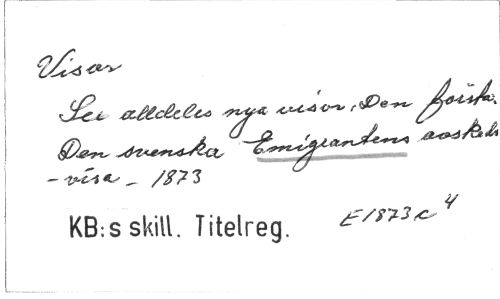 Visor
Sex alldeles nya visor. Den första:
Den svenska Emigrantens avskeds
-visa - 1873
KB:s skill. Titelreg. E1873c4